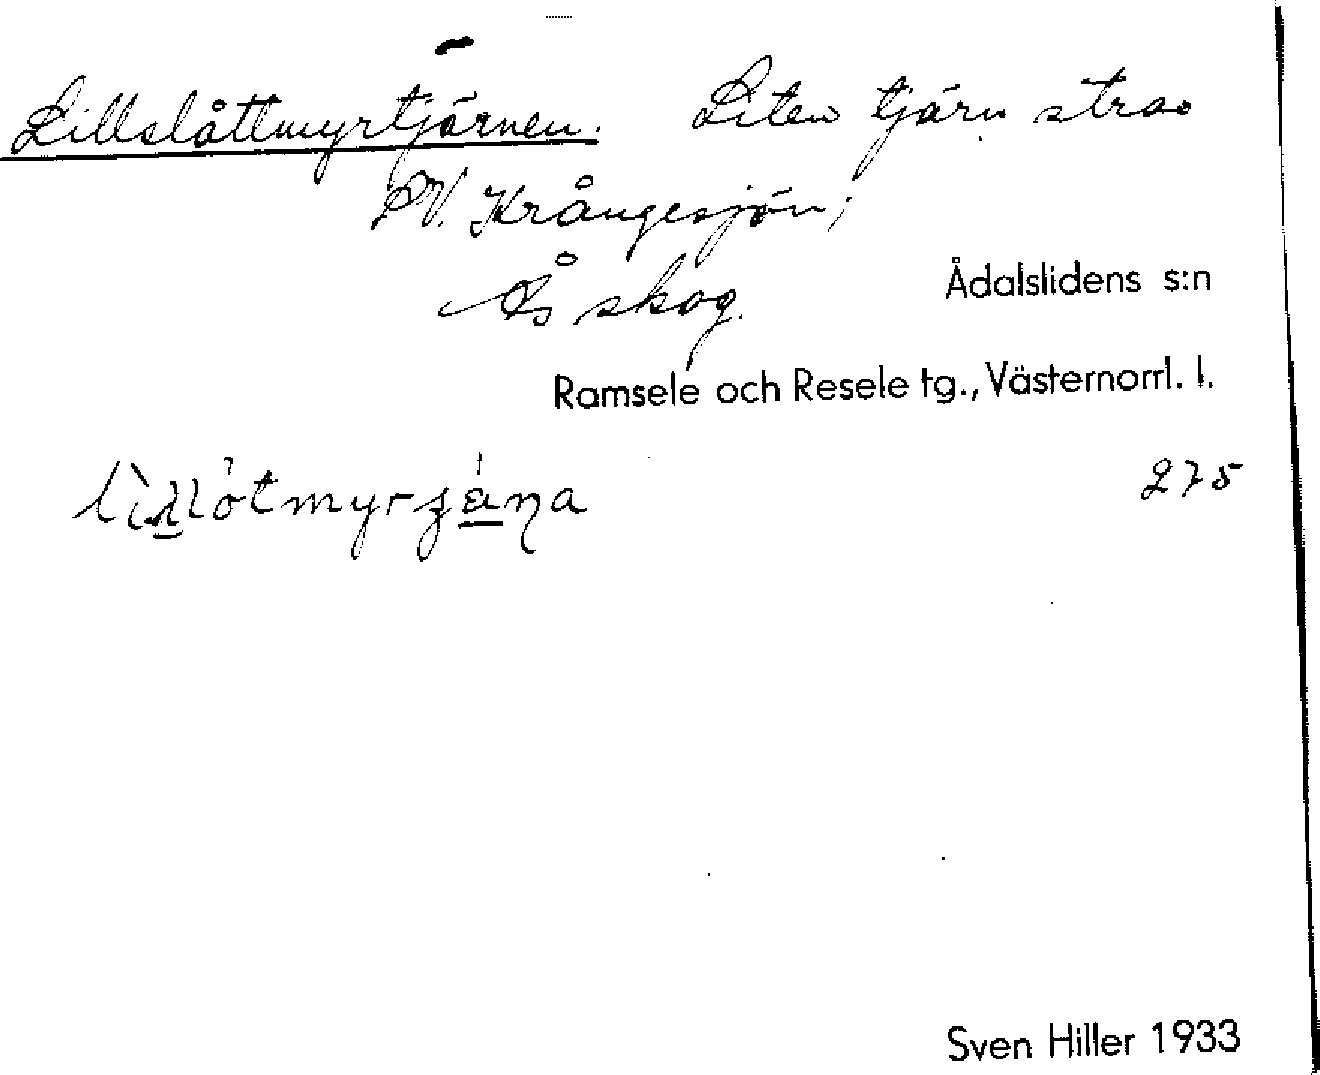 Lillslåttmyrtjärnen. Liten tjärn strax
SV. Krångesjön;
Ås skog.
Ådalslidens s:n
Ramsele och Resele tg., Västernorrl. l.
275
Sven Hiller 1933